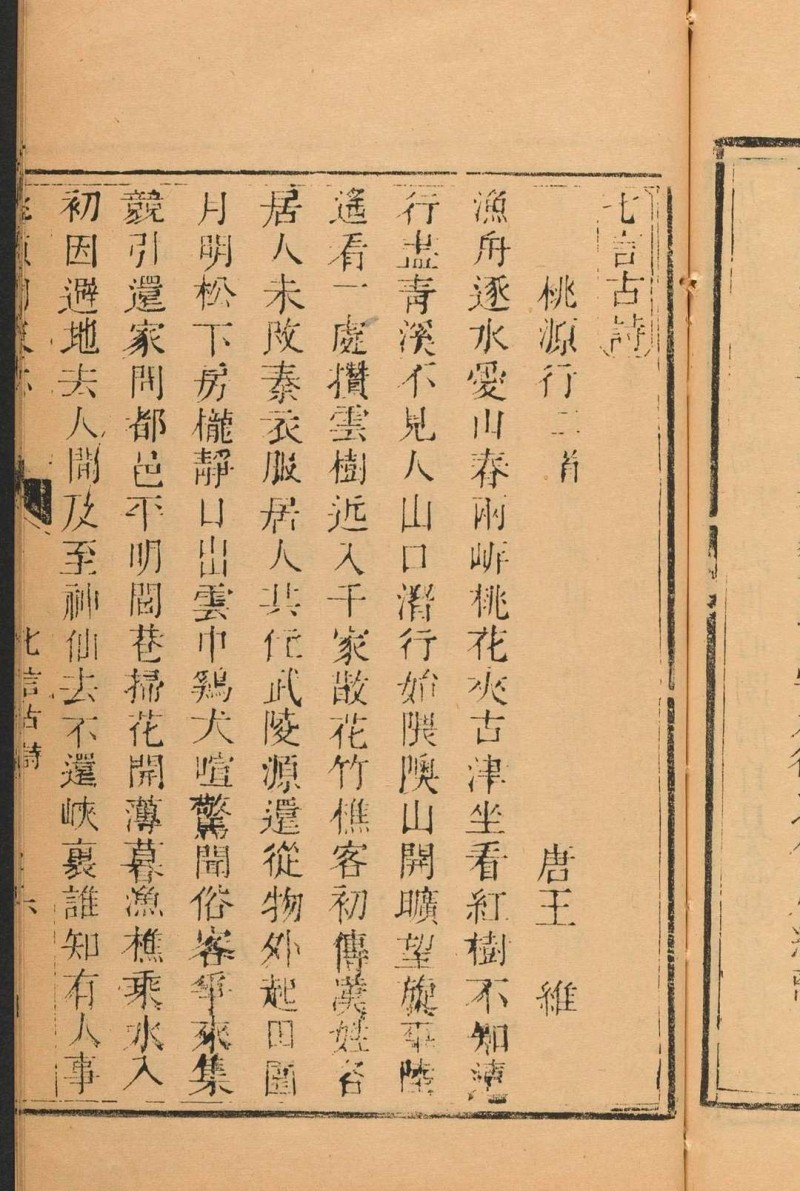 七言古詩
桃源行二首　唐王維
漁舟逐水愛山春兩岍桃花夾古津坐看紅樹不知遠
行盡青溪不見人山口潛行始隈隩山開曠望旋平陸
遙看一處攢雲樹近入千家散花竹樵客初傳漢姓名
居人未改秦衣服居人共住武陵源還從物外起田園
月明松下房櫳靜日出雲中鷄犬喧驚聞俗客爭來集
競引還家問都邑平明閭巷掃花開薄暮漁樵乘水入
初因避地去人間及至神仙去不還峽裏誰知有人事
七言古詩
六